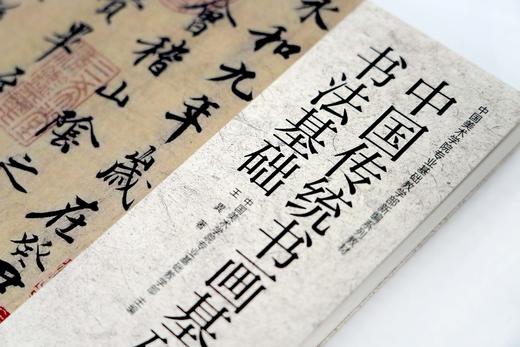 中国美术学院专业基础教学部新编系列教材
中国传统书画基
书法基础
中国美术学院专业基础教学部 主编
王 著
永和九年歲在癸丑
會稽山陰之
賢畢